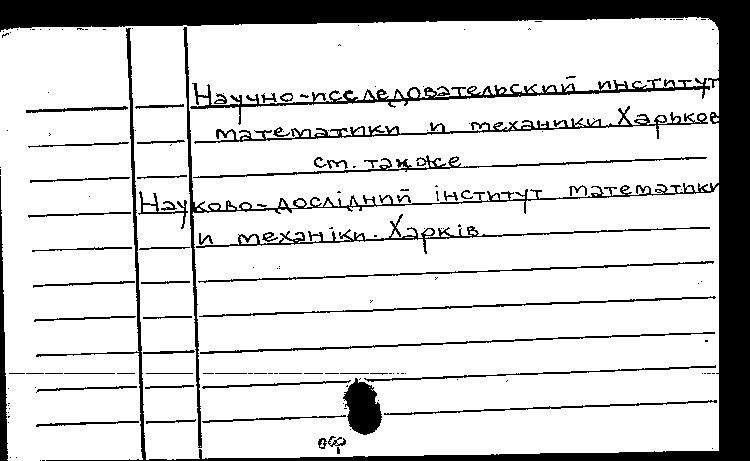 Научно-исследовательский институт
математики и механики. Харьков
см. также
Науково-дослідний інститут математики
и механіки. Харків.